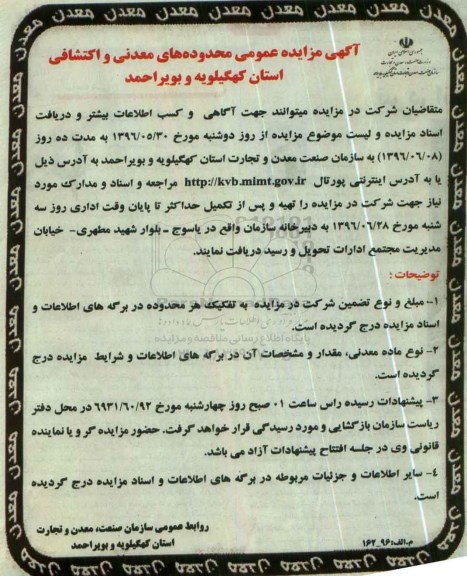 معدن معدن معدن معدن معدن معدن معدن معدن
جمهوری اسلامی ایران
آگهی مزایده عمومی محدوده‌های معدنی و اکتشافی
استان کهگیلویه و بویراحمد
متقاضیان شرکت در مزایده میتوانند جهت آگاهی و کسب اطلاعات بیشتر و دریافت
اسناد مزایده و لیست موضوع مزایده از روز دوشنبه مورخ ۱۳۹۶/۰۵/۳۰ به مدت ده روز
(۱۳۹۶/۰۶/۰۸) به سازمان صنعت معدن و تجارت استان کهگیلویه و بویراحمد به آدرس ذیل
یا به آدرس اینترنتی پورتال http://kvb.mimt.gov.ir مراجعه و اسناد و مدارک مورد
نیاز جهت شرکت در مزایده را تهیه و پس از تکمیل حداکثر تا پایان وقت اداری روز سه
شنبه مورخ ۱۳۹۶/۰۶/۲۸ به دبیرخانه سازمان واقع در یاسوج - بلوار شهید مطهری- خیابان
مدیریت مجتمع ادارات تحویل و رسید دریافت نمایند.
توضیحات :
۱- مبلغ و نوع تضمین شرکت در مزایده به تفکیک هر محدوده در برگه های اطلاعات و
اسناد مزایده درج گردیده است.
۲- نوع ماده معدنی، مقدار و مشخصات آن در برگه های اطلاعات و شرایط مزایده درج
گردیده است.
۳- پیشنهادات رسیده راس ساعت ۰۱ صبح روز چهارشنبه مورخ ۶۹۳۱/۶۰/۹۲ در محل دفتر
ریاست سازمان بازگشایی و مورد رسیدگی قرار خواهد گرفت. حضور مزایده گر و یا نماینده
قانونی وی در جلسه افتتاح پیشنهادات آزاد می باشد.
۴- سایر اطلاعات و جزئیات مربوطه در برگه های اطلاعات و اسناد مزایده درج گردیده
است.
روابط عمومی سازمان صنعت، معدن و تجارت
استان کهگیلویه و بویراحمد
م.الف:۹۶_۱۶۲
پایگاه اطلاع رسانی مناقصه و مزایده